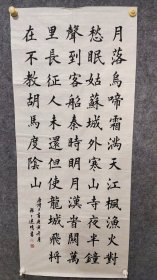 月落烏啼霜滿天江楓漁火對
愁眠姑蘇城外寒山寺夜半鐘
聲到客船秦時明月漢旹關萬
里長征人未還但使龍城飛將
在不教胡馬度陰山